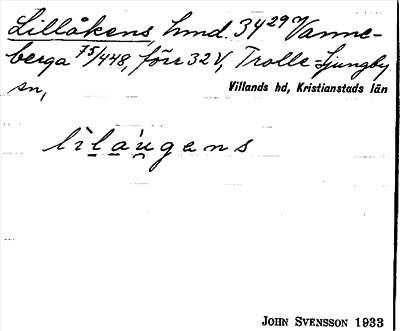 Lillåkens, hmd. 34²⁹ᵐ Vanne-
berga 75/448, förr 32 V, Trolle-Ljungby
sn,
Villands hd, Kristianstads län
lìḷạ́ṵgens
JOHN SVENSSON 1933